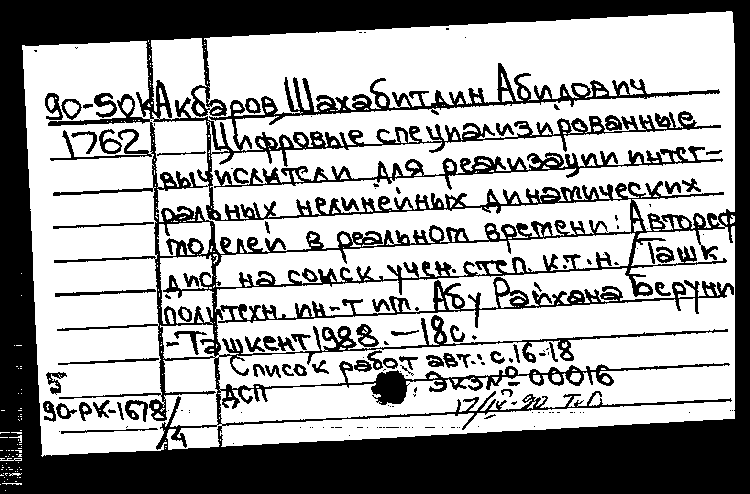 90-50К Акбаров Шахабитдин Абидович
1762 Цифровые специализированные
вычислители для реализации интег-
ральных нелинейных динамических
моделей в реальном времени: Автореф
дис. на соиск. учен. степ. к.т.н. / Ташк.
политехн. ин-т им. Абу Райхана Беруни
-Ташкент 1988. - 18 с.
Список работ авт.: с. 16-18
ДСП Экз № 00016
90-РК-1678/4
17/IV-90